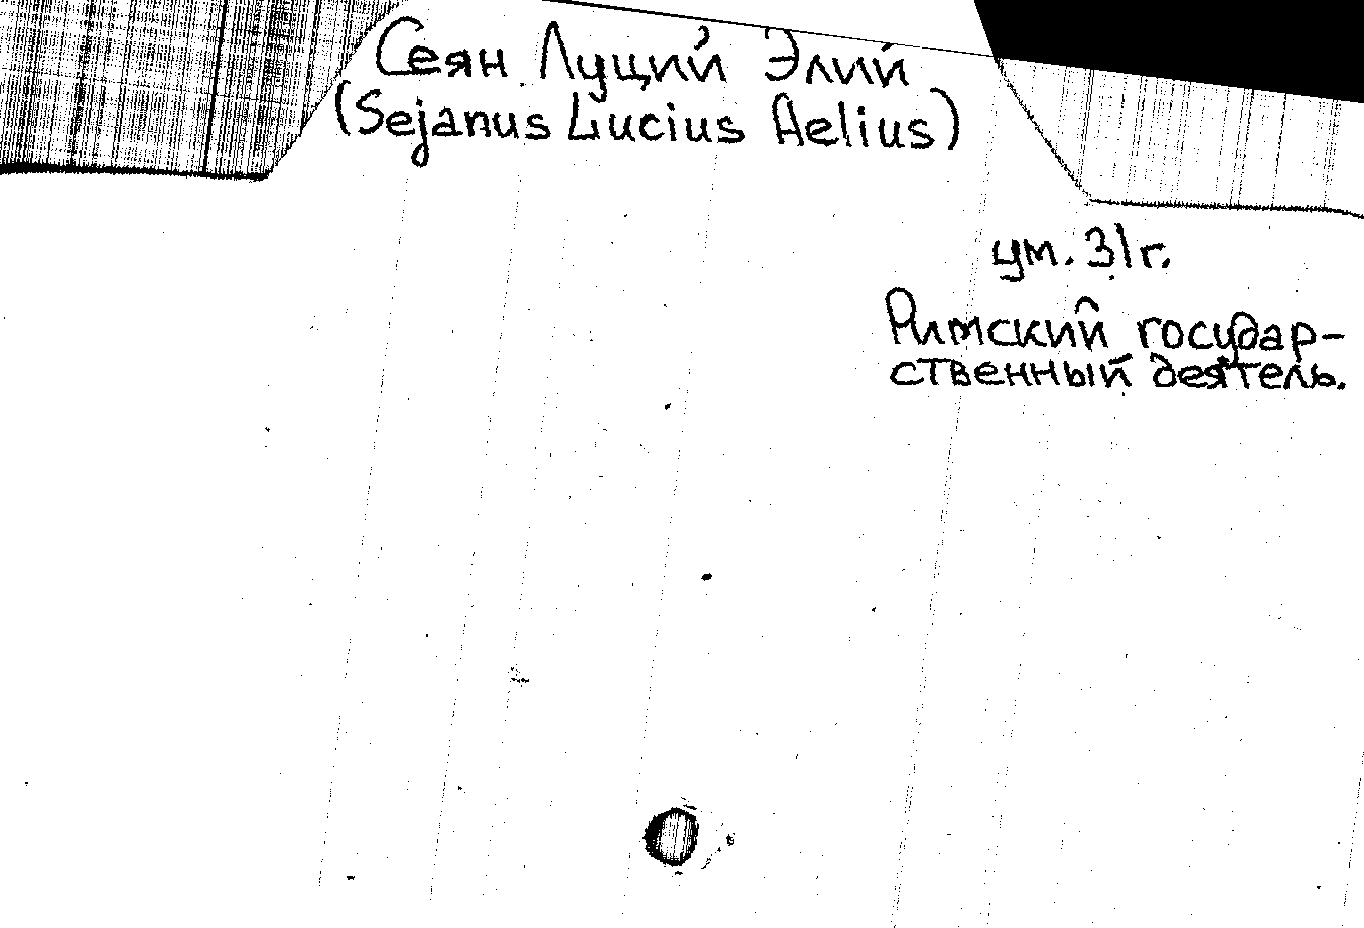 Сеян Луций Элий
(Sejanus Lucius Aelius)
ум. 31 г.
Римский государ-
ственный деятель.